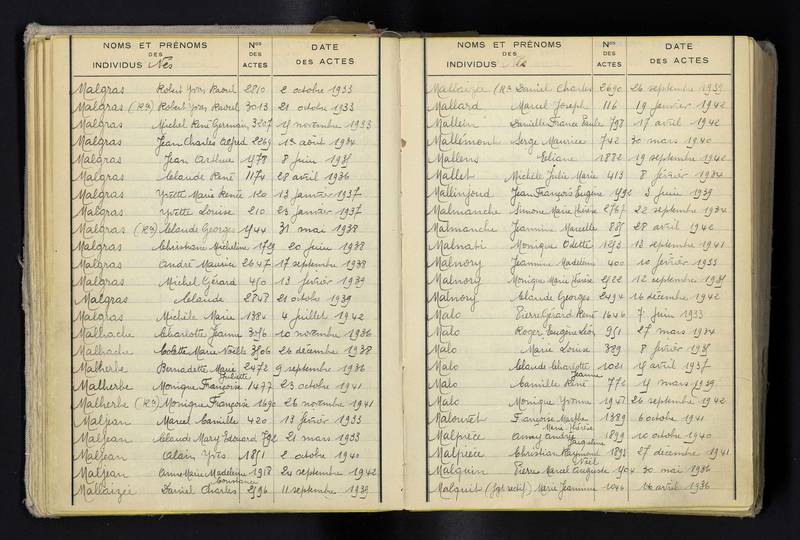 NOMS ET PRÉNOMS DES INDIVIDUS Nés Nos DES ACTES DATE DES ACTES
Malgras Robert Yves Raoul 2810 2 octobre 1933
Malgras (Ron) Robert Yves Raoul 3013 21 octobre 1933
Malgras Michel René Germain 3207 4 novembre 1933
Malgras Jean Charles Alfred 2269 1er août 1934
Malgras Jean Arthur 1478 8 juin 1935
Malgras Claude René 1174 28 avril 1936
Malgras Yvette Marie Renée 120 13 janvier 1937
Malgras Yvette Louise 210 23 janvier 1937
Malgras Claude Georges 1544 31 mai 1938
Malgras Christiane Micheline 1729 20 juin 1938
Malgras André Maurice 2647 17 septembre 1938
Malgras Michel Gérard 450 13 février 1939
Malgras Claude 2848 21 octobre 1939
Malgras Michèle Marie 1384 4 juillet 1942
Malhache Charlotte Jeanne 3076 10 novembre 1936
Malhache Colette Marie Noëlle 3506 26 décembre 1938
Malherbe Bernadette Marie Juliette 2472 9 septembre 1936
Malherbe Monique Françoise 1477 23 octobre 1941
Malherbe Monique Françoise 1690 26 novembre 1941
Maljean Marcel Camille 420 13 février 1933
Maljean Claude Mary Edouard 792 21 mars 1933
Maljean Alain Yves 1851 2 octobre 1940
Maljean Anne Marie Madeleine Constance 1918 24 septembre 1942
Mallaizée Daniel Charles 2596 11 septembre 1939
NOMS ET PRÉNOMS DES INDIVIDUS Nés Nos DES ACTES DATE DES ACTES
Daniel Charles 2690 26 septembre 1939
Mallard Marcel Joseph 116 19 janvier 1942
Mallein Danielle France Paule 798 17 avril 1942
Mallémont Serge Maurice 742 30 mars 1940
Mallens Eliane 1882 19 septembre 1942
Mallet Michèle Julie Marie 413 8 février 1934
Mallinjoud Jean François Eugène 3 juin 1939
Malmanche Simone Marie Thérèse 2767 22 septembre 1934
Malmanche Jeannine Marcelle 881 28 avril 1942
Malnati Monique Odette 1293 13 septembre 1941
Malnory Jeannine Madeleine 400 10 février 1933
Malnory Monique Marie Thérèse 2522 12 septembre 1935
Malnory Claude Georges 2494 16 décembre 1942
Malo Pierre Gérard René 1646 7 juin 1933
Malo Roger Eugène Léon 951 27 mars 1934
Malo Marie Louise 389 8 février 1935
Malo Claude Charlotte Jeanne 1021 4 avril 1937
Malo Camille René 772 4 mars 1939
Malo Monique Yvonne 1945 26 septembre 1942
Malouvet Françoise Marthe Marie Thérèse 1389 6 octobre 1941
Malpièce Anny Andrée Jacqueline 1899 10 octobre 1940
Malpièce Christian Raymond Noël 1891 27 décembre 1941
Malquin Pierre Marcel Auguste 30 mai 1936
Malquit Marie Jeannine 1046 16 avril 1936